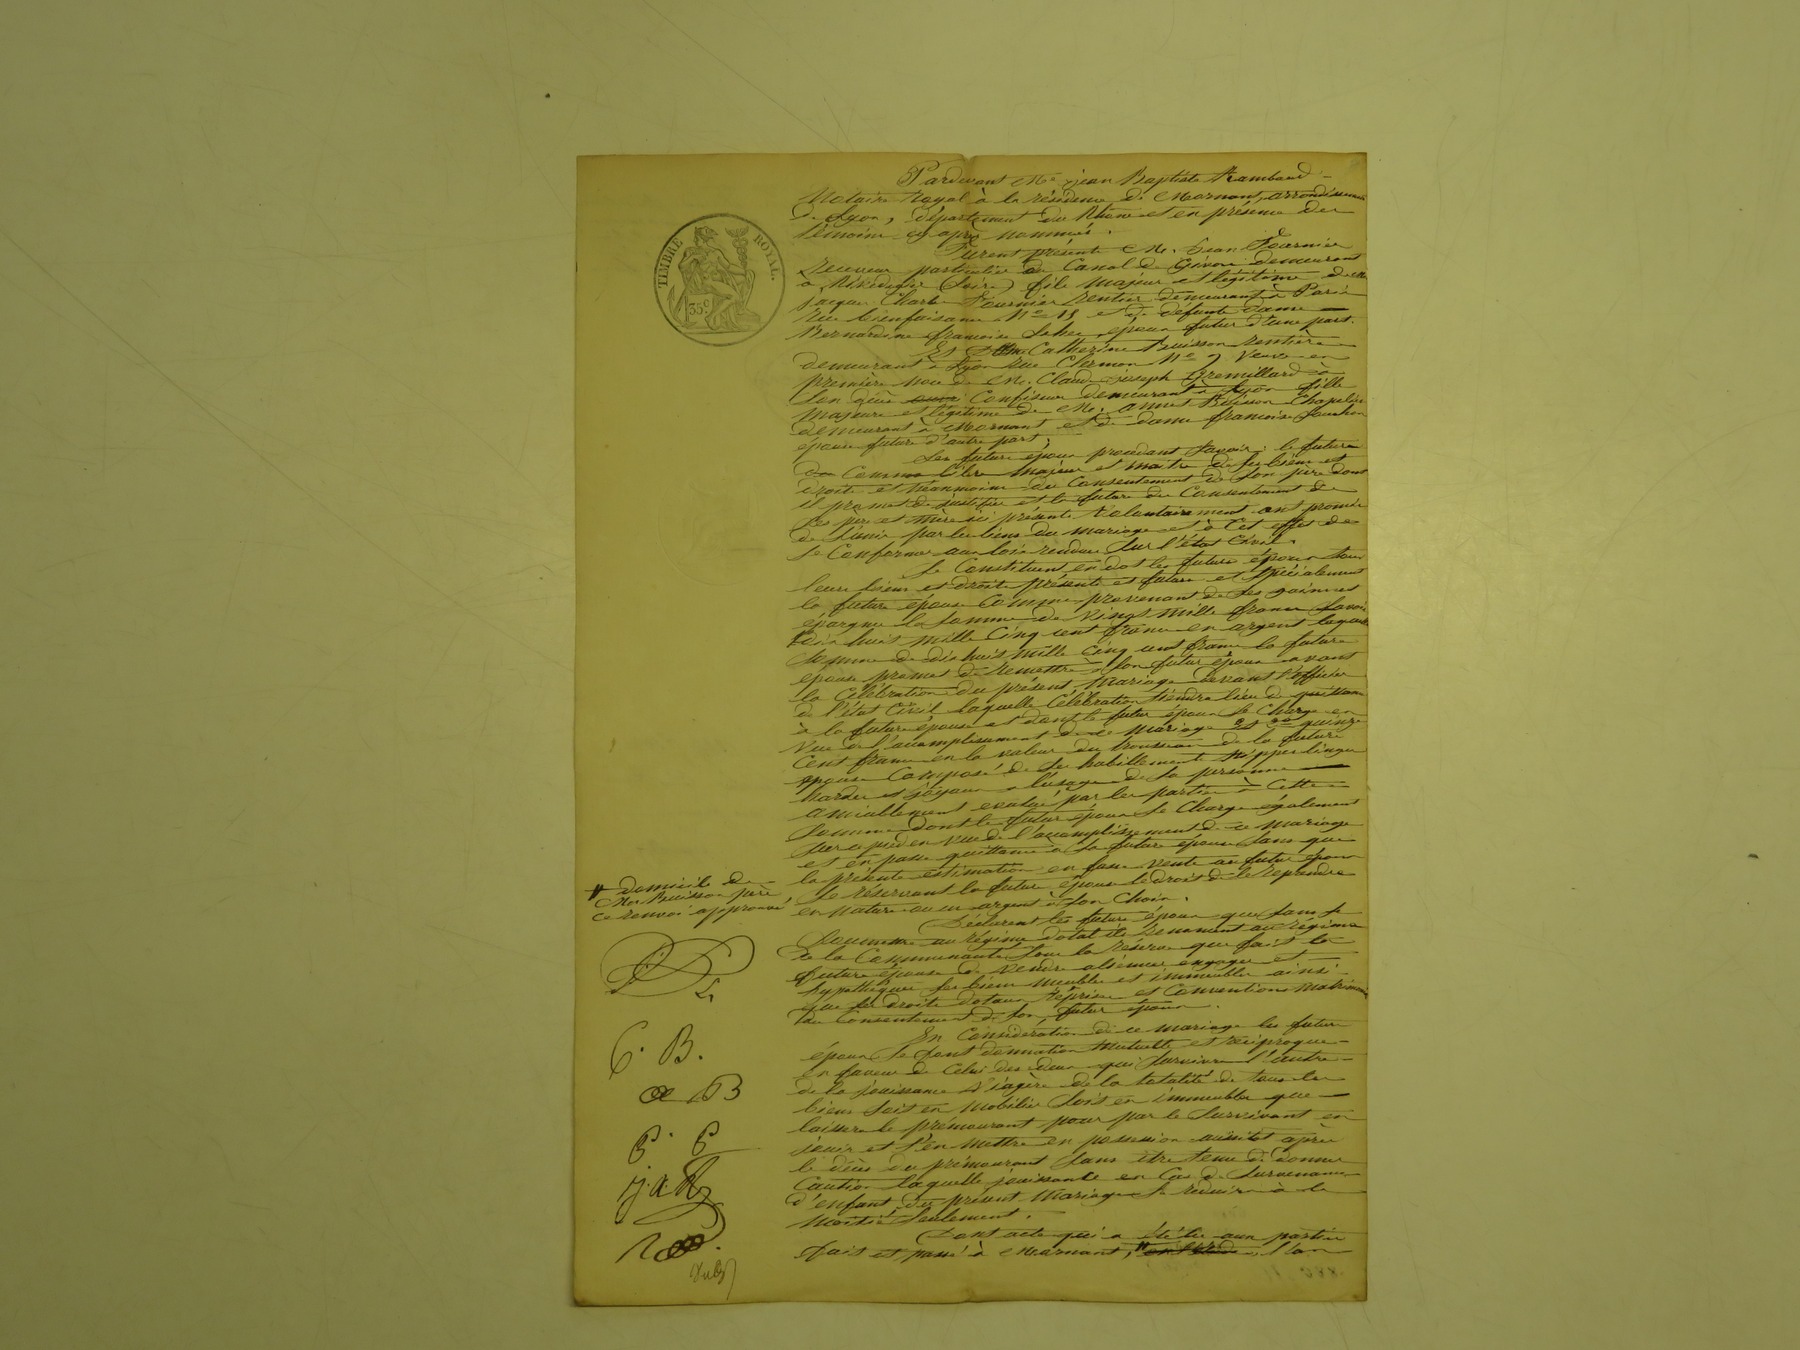 Pardevant Me jean Baptiste Rambaud
Notaire Royal à la résidence de Mornant, arrondissement
de Lyon, département du Rhône et en présence des
témoins cy après nommés.
TIMBRE ROYAL.
35 c.
Furent présents Mr. Jean Fournier
Receveur particulier du Canal de Givors demeurant
à Rivedegier (Loire) fils majeur et légitime de Mr
jacques Charles Fournier Rentier demeurant à Paris
Rue bienfaisance No 15 et de défunte dame
Bernardine françoise époux futur d'une part.
Et Catherine Buisson Rentière
demeurant à Lyon Rue Clermon No 7 Veuve en
première Noce de Mr. Claude Joseph Gremillard
Confiseur demeurant à Lyon fille
Majeure et légitime de Mr. annet Buisson Chapelier
demeurant à Mornant et de dame francoise
épouse future d'autre part;
Les futurs époux procédant savoir: le futur
Comme libre Majeur et maitre de ses biens et
droits et Néanmoins du Consentement de son père dont
il promet de justifier et la future du Consentement de
ses père et mère ici présents Volontairement ont promis
de s'unir par les liens du mariage et à Cet effet de
se Conformer aux lois rendues sur l'état Civil.
Se Constituent en dot les futurs époux tous
leurs biens et droits présents et futurs et spécialement
la future épouse Comme provenant de ses gains et
epargnes la somme de Vingt mille francs savoir
dix huit mille Cinq cent francs en argent laquelle
somme de dix huit mille Cinq cent francs la future
épouse promet de remettre à son futur époux avant
la Célébration du présent Mariage devant l'officier
de l'état Civil laquelle Célébration tiendra lieu de quittance
à la future épouse et dont le futur époux se Charge en
Vue de l'accomplissement de ce Mariage et quinze
Cent francs en la valeur du trousseau de la future
épouse Composé de ses habillements Nippes linges
hardes et joyaux à l'usage de sa personne
amiablement evalué par les parties à Cette
somme dont le futur époux se Charge également
sur ce pied en vue de l'accomplissement de ce mariage
et en passe quittance à sa future épouse sans que
la présente estimation en fasse vente au futur époux
se réservant la future épouse le droit de le reprendre
en nature ou en argent à son Choix.
domicile de
Mr Buisson père
ce renvoi approuvé
Déclarent les futurs époux que sans se
soumettre au régime dotal ils renoncent au régime
de la Communauté sous la réserve que fait la
future épouse de vendre aliéner engager et
hypothéquer ses biens meubles et immeubles ainsi
que ses droits dotaux Reprises et Conventions Matrimoniales
du Consentement de son futur époux.
En Considération de ce mariage les futurs
époux se font donation Mutuelle et réciproque
en faveur de Celui des deux qui survivra l'autre
de la jouissance Viagère de la totalité de tous les
biens soit en Mobilier soit en immeubles que
laissera le prémourant pour par le survivant en
jouir et s'en mettre en possession aussitot après
le décès du prémourant sans etre tenu de donner
Caution laquelle jouissance en Cas de survenance
d'enfants du présent Mariage se réduira à la
Moitié seulement.
C. B.
B
j. a. R
Dont acte qui a été lu aux parties
fait et passé à Mornant, l'an